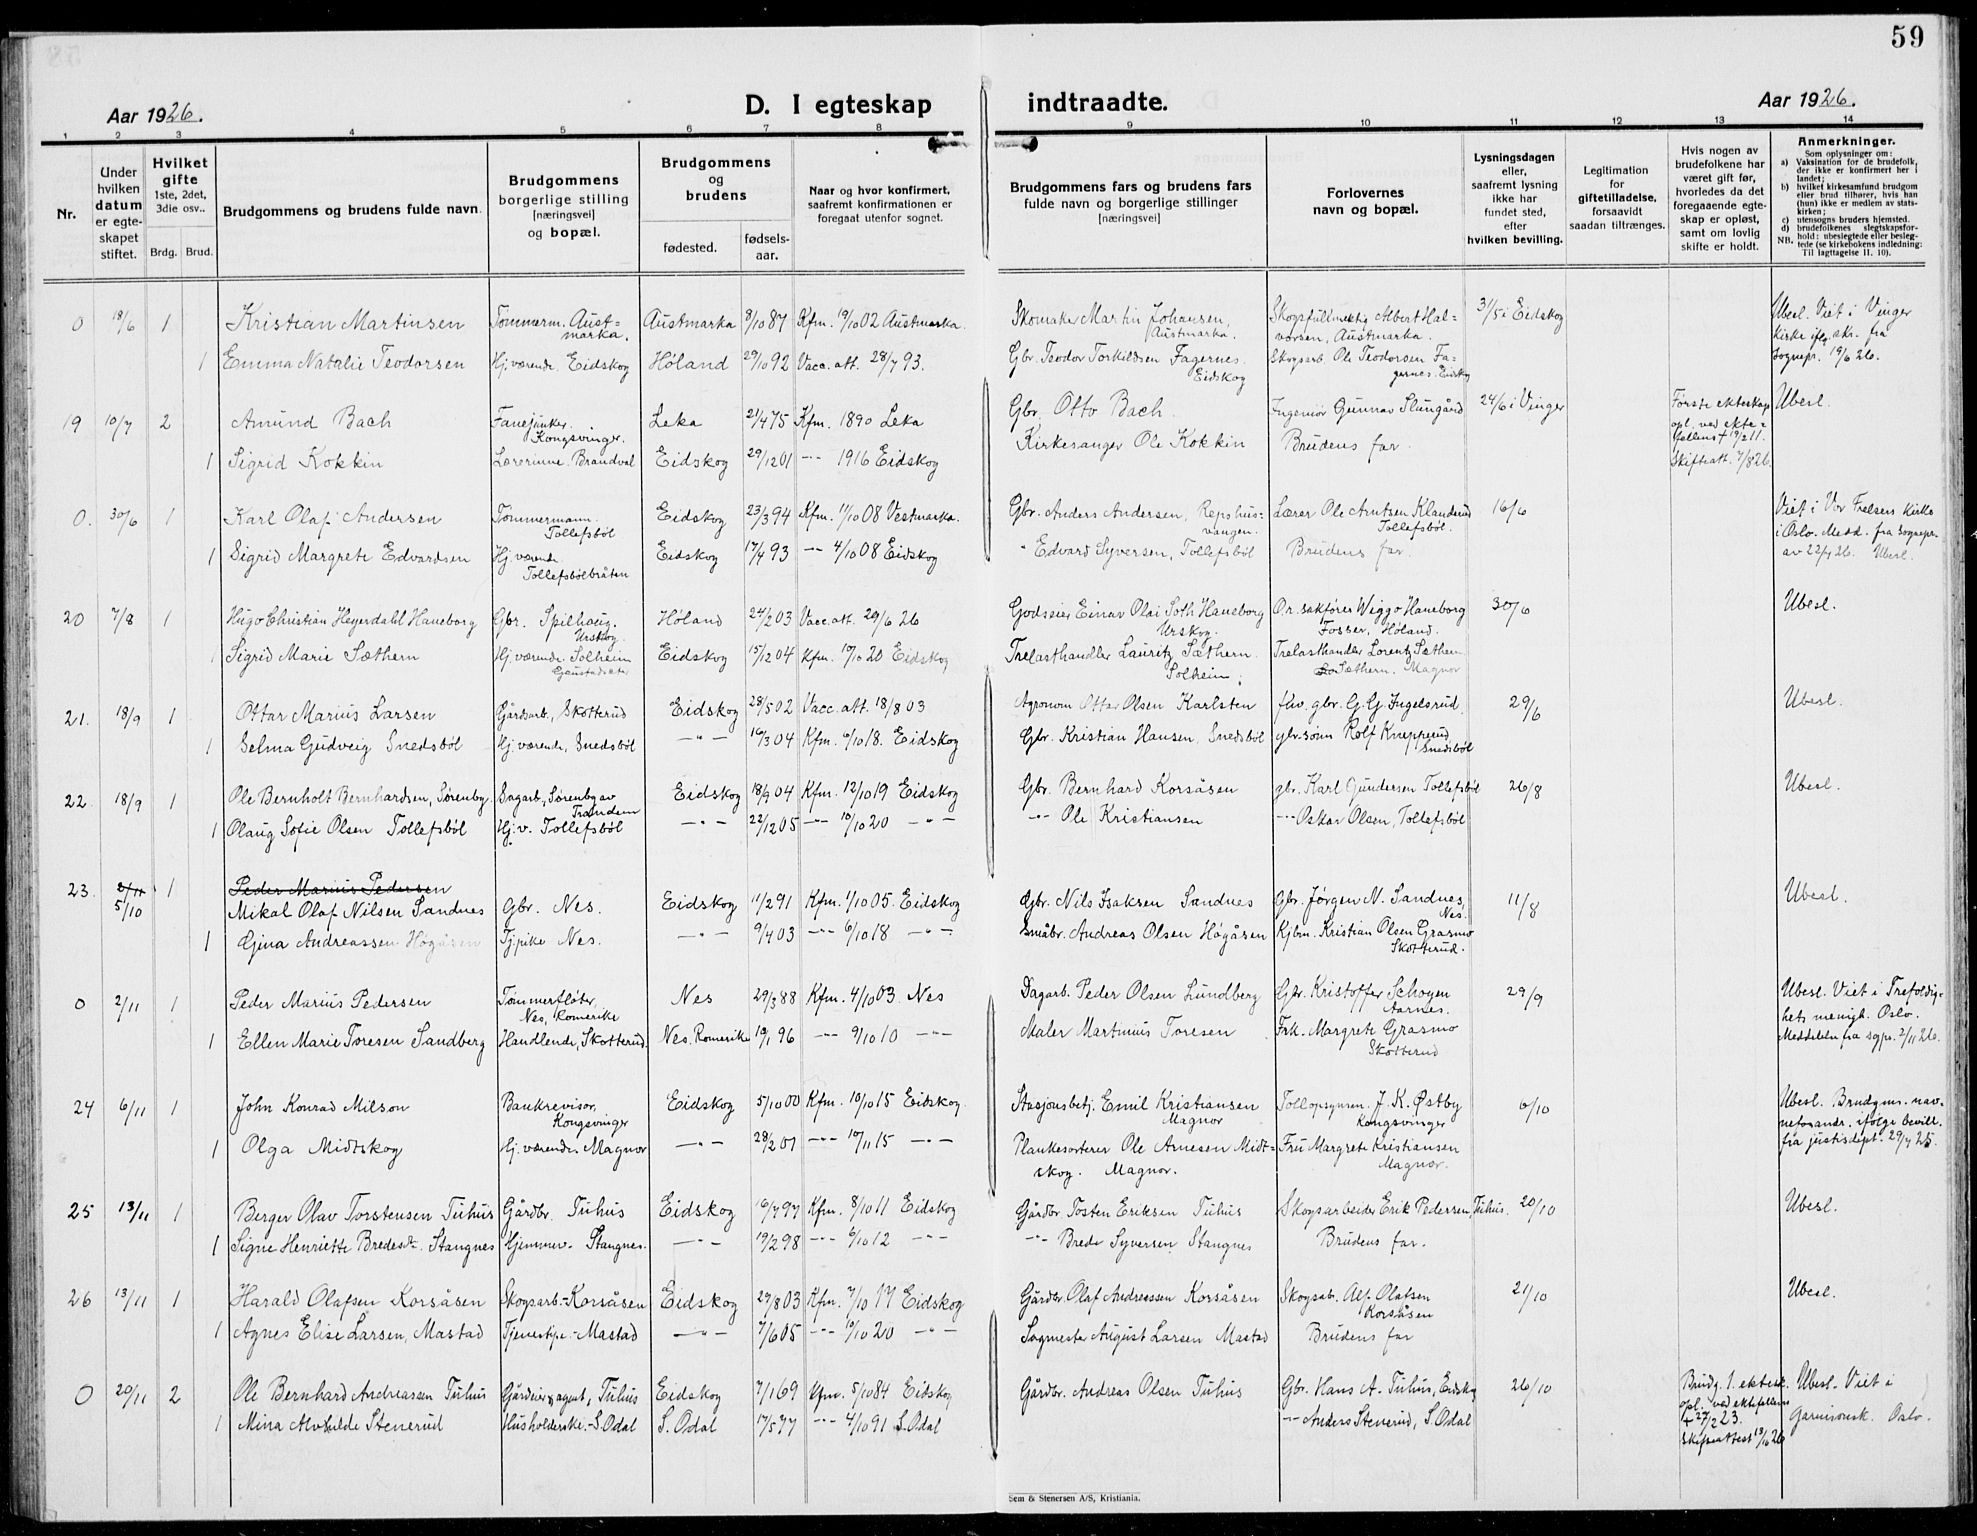 59
Aar 1926.
D. I egteskap indtraadte.
Aar 1926.
1 2 3 4 5 6 7 8 9 10 11 12 13 14
Nr.
Under hvilken datum er egteskapet stiftet.
Hvilket gifte
1ste, 2det, 3die osv..
Brdg. Brud.
Brudgommens og brudens fulde navn.
Brudgommens borgerlige stilling [næringsvei] og bopæl.
Brudgommens og brudens
fødested. fødselsaar.
Naar og hvor konfirmert, saafremt konfirmationen er foregaat utenfor sognet.
Brudgommens fars og brudens fars fulde navn og borgerlige stillinger [næringsvei]
Forlovernes navn og bopæl.
Lysningsdagen eller, saafremt lysning ikke har fundet sted, efter hvilken bevilling.
Legitimation for giftetilladelse, forsaavidt saadan tiltrænges.
Hvis nogen av brudefolkene har været gift før, hvorledes da det foregaaende egteskap er opløst, samt om lovlig skifte er holdt.
Anmerkninger.
Som oplysninger om:
a) Vaksination for de brudefolk, der ikke er konfirmert her i landet;
b) hvilket kirkesamfund brudgom eller brud tilhører, hvis han (hun) ikke er medlem av statskirken;
c) utensogns bruders hjemsted.
d) brudefolkenes slegtskapsforhold: ubeslegtede eller beslegtede (se kirkebokens indledning: Til Iagttagelse II. 10).
NB.
0 18/6 1 Kristian Martinsen Tømmerm. Austmarka. Austmarka 8/10 87 Kfm. 19/10 02 Austmarka. Skomaker Martin Johansen, Austmarka. Skogsfullmektig Albert Halvorsen, Austmarka. 31/5 i Eidskog Ubesl. Viet i Vinger
1 Emma Natalie Teodorsen Hj.værende. Eidskog Høland 29/10 92 Vacc. att. 28/7 93. Gbr. Teodor Torkildsen Fagernes. Eidskog Skogsarb. Ole Teodorsen Fagernes. Eidskog kirke iflg. skr. fra Sognepr. 19/6 26.
19 10/7 2 Amund Bach Fanejunker. Kongsvinger. Leka 21/4 75 Kfm. 1890 Leka Gbr. Otto Bach. Ingeniør Gunnar Slungård 24/6 i Vinger Første ekteskap opl. ved ektefellens † 19/2 11. Skifteatt. 7/8 26. Ubesl.
1 Sigrid Kokkin Lærerinne. Brandval Eidskog 29/12 01 -"- 1916 Eidskog Kirkesanger Ole Kokkin Brudens far.
0. 30/6 1 Karl Olaf Andersen Tømmermann. Tollefsbøl Eidskog 23/3 94 Kfm. 11/10 08 Vestmarka. Gbr. Anders Andersen, Repshusvangen. Lærer Ole Arntsen Klanderud Tollefsbøl. 16/6 Viet i Vor Frelsers Kirke
1 Sigrid Margrete Edvardsen Hj.værende. Tollefsbølbråten Eidskog 17/4 93 -"- 4/10 08 Eidskog " Edvard Syversen, Tollefsbøl Brudens far. i Oslo. Medd. fra Sognepr. av 22/7 26. Ubesl.
20 7/8 1 Hugo Christian Heyerdahl Haneborg Gbr. Spilhaug. Urskog. Høland 24/2 03 Vacc. att. 29/6 26 Godseier Einar Olai Soth Haneborg Urskog. O.r. sakfører Wiggo Haneborg Fosser, Høland. 30/6 Ubesl.
1 Sigrid Marie Sæthern Hj.værende. Solheim Eidskog 15/12 04 Kfm. 10/10 20 Eidskog Trelasthandler Lauritz Sæthern. Solheim. Trelasthandler Lorentz Sæthern Sæthern. Magnor
21. 18/9 1 Ottar Marius Larsen Gårdsarb., Skotterud Eidskog 28/5 02 Vacc. att. 18/8 03 Agronom Ottar Olsen Karlsten fhv. gbr. G. G. Ingelsrud. 29/6 Ubesl.
1 Selma Gudveig Snedsbøl Hj.værende, Snedsbøl -"- 16/3 04 Kfm. 6/10 18. Eidskog Gbr. Kristian Hansen, Snedsbøl gbr.sønn Rolf Knapperud, Snedsbøl
22. 18/9 1 Ole Bernholt Bernhardsen, Sørenby. Sagarb., Sørenby av Trandem Eidskog 18/9 04 Kfm. 12/10 19 Eidskog Gbr. Bernhard Korsåsen gbr. Karl Gundersen Tollefsbøl 26/8 Ubesl.
1 Olaug Sofie Olsen Tollefsbøl Hj.v. Tollefsbøl -"- 22/12 05 -"- 10/10 20 -"- -"- Ole Kristiansen -"- Oskar Olsen, Tollefsbøl
23. 2/11 1 Peder Marius Pedersen
5/10 Mikal Olaf Nilsen Sandnes Gbr. Nes. Eidskog 11/2 91 Kfm. 1/10 05. Eidskog Gbr. Nils Isaksen Sandnes Gbr. Jørgen N. Sandnes, Nes. 11/8 Ubesl.
1 Gina Andreassen Høgåsen Tj.pike Nes. -"- 9/4 03 -"- 6/10 18 -"- Småbr. Andreas Olsen Høgåsen Kjbm. Kristian Olsen Grasmo Skotterud.
0 2/11 1 Peder Marius Pedersen Tømmerfløter, Nes, Romerike Nes 29/3 88 Kfm. 4/10 03. Nes Dagarb. Peder Olsen Lundberg Gbr. Kristoffer Schoyen Aarnes. 29/9 Ubesl. Viet i Trefoldighets menigh. Oslo.
1 Ellen Marie Toresen Sandberg Handlende, Skotterud. Nes. Romerike 19/1 96 -"- 9/10 10 -"- Maler Martinius Toresen Frk. Margrete Grasmo Skotterud Meddelen fra sgpr. 2/11 26.
24 6/11 1 John Konrad Milson Bankrevisor, Kongsvinger Eidskog 5/10 00 Kfm. 10/10 15 Eidskog. Stasjonsbetj. Emil Kristiansen Magnor Tollopsynsm. J. K. Østby Kongsvinger 6/10 Ubesl. Brudgms. navneforandr. ifølge bevill.
1 Olga Midtskog Hj.værende. Magnor -"- 28/2 01 -"- 10/11 15 -"- Plankesorterer Ole Arnesen Midtskog. Magnor. Fru Margrete Kristiansen Magnor. fra justisdept. 29/7 25.
25 13/11 1 Berger Olav Torstensen Tuhus Gårdbr. Tuhus Eidskog 16/7 97 Kfm. 8/10 11 Eidskog Gårdbr. Tosten Eriksen Tuhus Skogsarbeider Erik Pedersen, Tuhus. 20/10 Ubesl.
1 Signe Henriette Bredesdt. Stangnes Hjemmev. Stangnes. -"- 19/2 98 -"- 6/10 12 -"- -"- Brede Syversen Stangnes Brudens far.
26 13/11 1 Harald Olafsen Korsåsen Skogsarb.-Korsåsen Eidskog 29/8 03 Kfm. 7/10 17 Eidskog Gårdbr. Olaf Andreassen Korsåsen Skogsab. Alf Olafsen Korsåsen 21/10 Ubesl.
1 Agnes Elise Larsen, Mastad Tjenestpe.-Mastad -"- 7/6 05 -"- 10/10 20 -"- Sagmester August Larsen Mastad Brudens far
0 20/11 2 Ole Bernhard Andreassen Tuhus Gårdeier & agent, Tuhus Eidskog 7/1 69 Kfm. 5/10 84 Eidskog Gårdbr. Andreas Olsen Tuhus Gbr. Hans A. Tuhus, Eidskog 26/10 Brudg. 1. ektesk. opl. ved ektefellens † 27/2 23. Skifteattest 13/10 26 Ubesl. Viet i
1 Mina Alvhilde Stenerud Husholderske.-S. Odal S. Odal 17/5 77 -"- 4/10 91 S. Odal -"- Anders Stenerud, S. Odal Garnisonsk. Oslo.
Sem & Stenersen A/S, Kristiania.